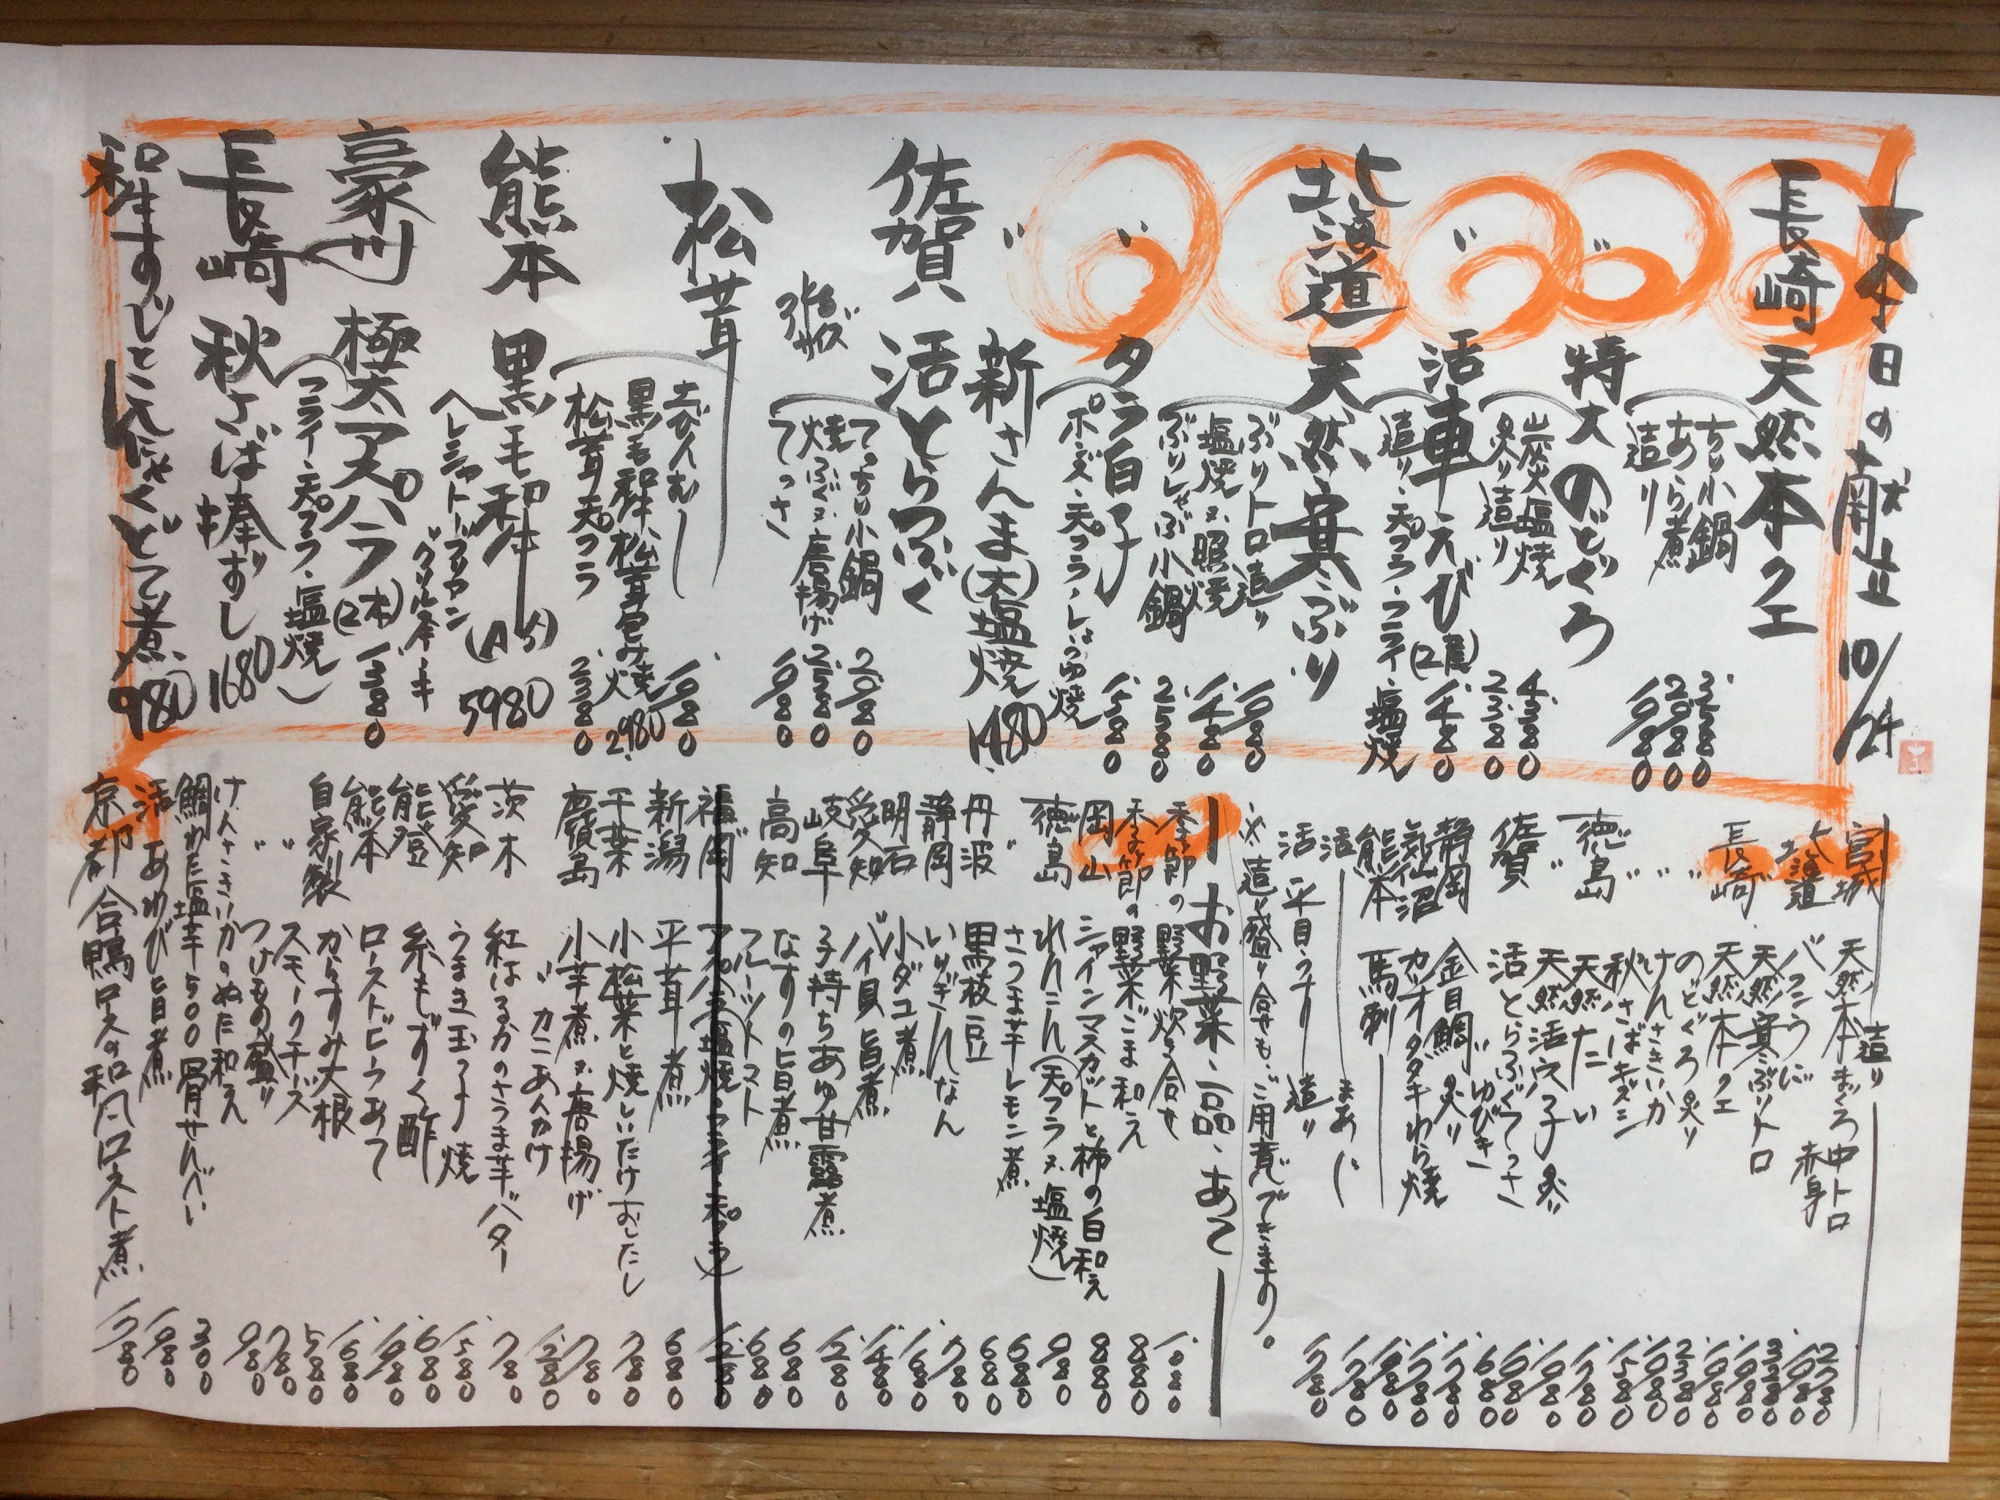 本日の献立 10/24
長崎 天然本クエ
ちり小鍋 3,280
あら煮 2,080
造り 1,980
〃 特大のどぐろ
炭火塩焼 4,380
炙り造り 2,380
〃 活車えび(2尾) 1,480
造り・天プラ・フライ・塩焼
北海道 天然寒ぶり
ぶりトロ造り 1,980
塩焼又照焼 1,480
ぶりしゃぶ小鍋 2,580
〃 タラ白子 1,580
ポン酢・天プラ・しょうゆ焼
〃 新さんま(大)塩焼 1480
佐賀 活とらふぐ
てっちり小鍋 2,080
焼ふぐ又唐揚げ 2,580
てっさ 1,980
松茸
土びんむし 1,980
黒毛和牛松茸包み焼 2,980
松茸天プラ 2,380
熊本 黒毛和牛(A5) 5980
ヘレシャトーブリアン
グリルステーキ
豪州 極太アスパラ(2本) 1,380
(フライ・天プラ・塩焼)
長崎 秋さば棒ずし 1680
和牛すじとこんにゃくどて煮 980
造り
宮城 天然本まぐろ中トロ 2,780
赤身 1,980
北海道 バフンうに 3,280
〃 天然寒ぶりトロ 1,980
長崎 天然本クエ 1,980
〃 のどぐろ炙り 2,380
〃 けんさきいか 1,080
〃 秋さばキズシ 1,580
徳島 天然たい 1,780
〃 天然活穴子炙り 1,980
佐賀 活とらふぐてっさ 1,980
ゆびき 680
静岡 金目鯛炙り 1,780
気仙沼 カツオタタキわら焼 1,780
熊本 馬刺 1,980
活 まあじ 1,780
活 平目・うすり 造り 1,780
※造り盛り合せもご用意できます。
お野菜・一品・あて
季節の野菜炊き合せ 1,080
季節の野菜ごま和え 880
岡山 シャインマスカットと柿の白和え 880
徳島 れんこん(天プラ又塩焼) 980
〃 さつま芋レモン煮 680
丹波 黒枝豆 680
静岡 いりぎんなん 780
明石 小ダコ煮 1,680
愛知 バイ貝旨煮 1,480
岐阜 子持ちあゆ甘露煮 1,280
高知 なすの旨煮 680
〃 フルーツトマト 680
福岡 アスパラ(塩焼・フライ・天プラ) 1,280
新潟 平茸煮 680
千葉 小松菜と焼しいたけおひたし 780
鹿児島 小芋煮又唐揚げ 780
〃カニあんかけ 1,280
茨木 紅はるかのさつま芋バター 780
愛知 うまき玉子焼 1,580
能登 糸もずく酢 680
熊本 ローストビーフあて 1,980
自家製 からすみ大根 1,680
〃 スモークチーズ 580
〃 つけもの盛り 780
けんさきいかのぬた和え 980
鯛わた塩辛500 骨せんべい 300
活 あわび旨煮 1,980
京都 合鴨ロースの和風ロースト煮 1,780